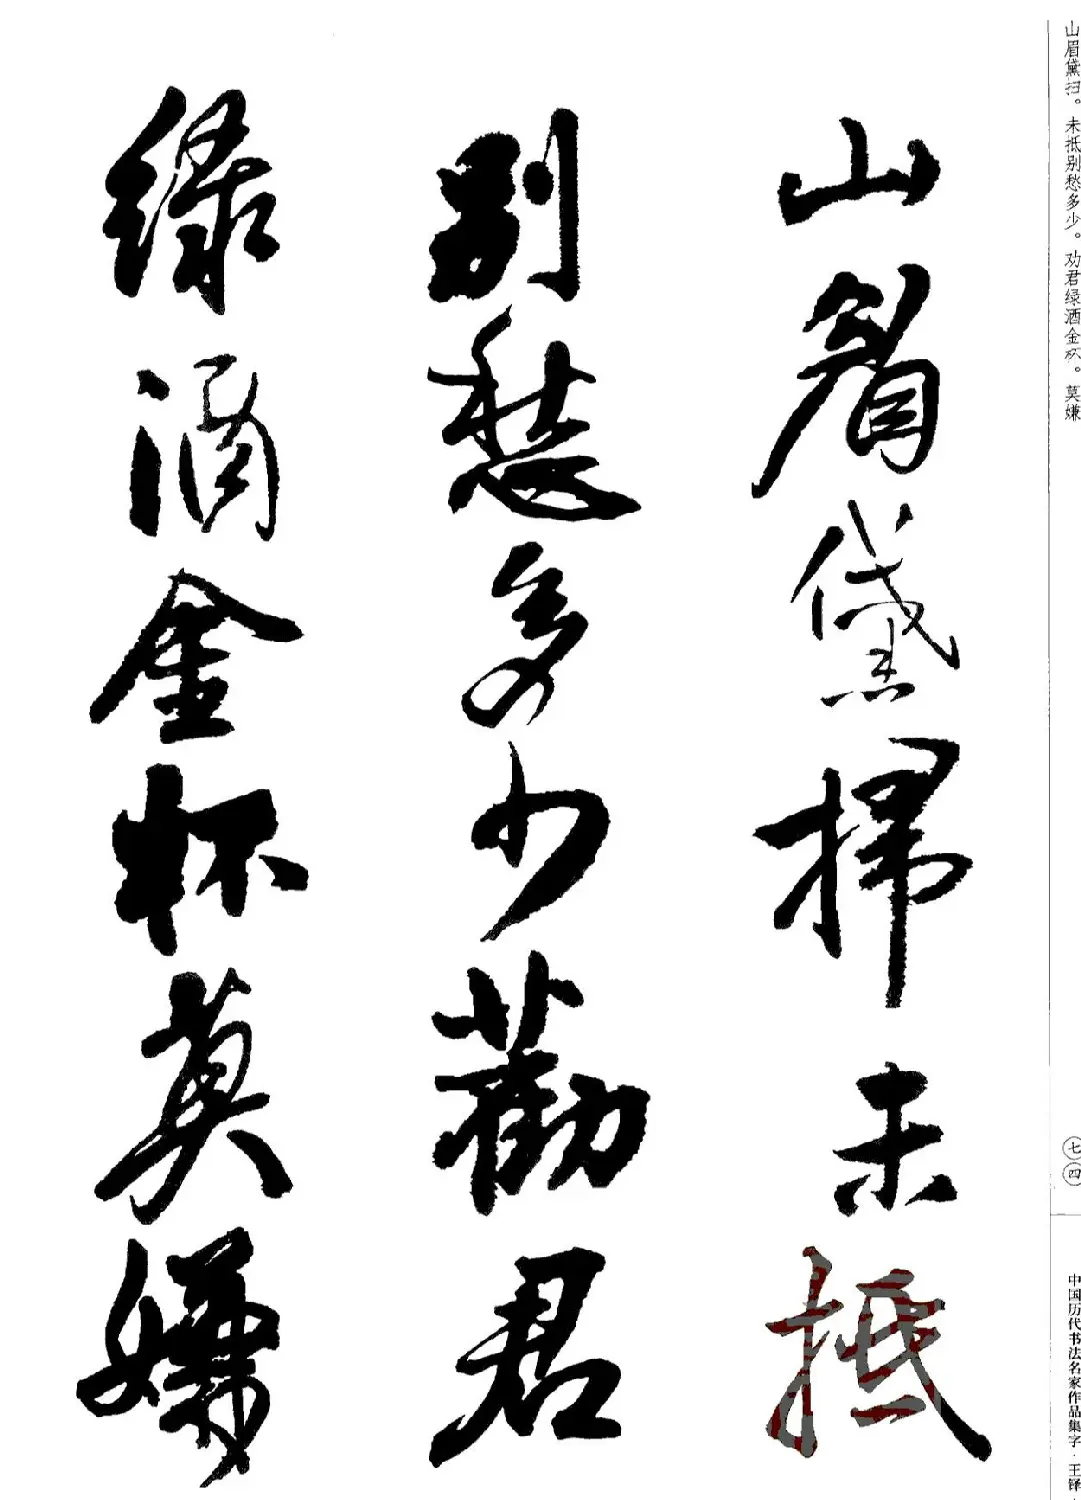 山眉黛扫。未抵别愁多少。劝君绿酒金杯。莫嫌
七四
中国历代书法名家作品集字·王铎·
山眉黛掃未抵
别愁多少勸君
绿酒金杯莫嫌